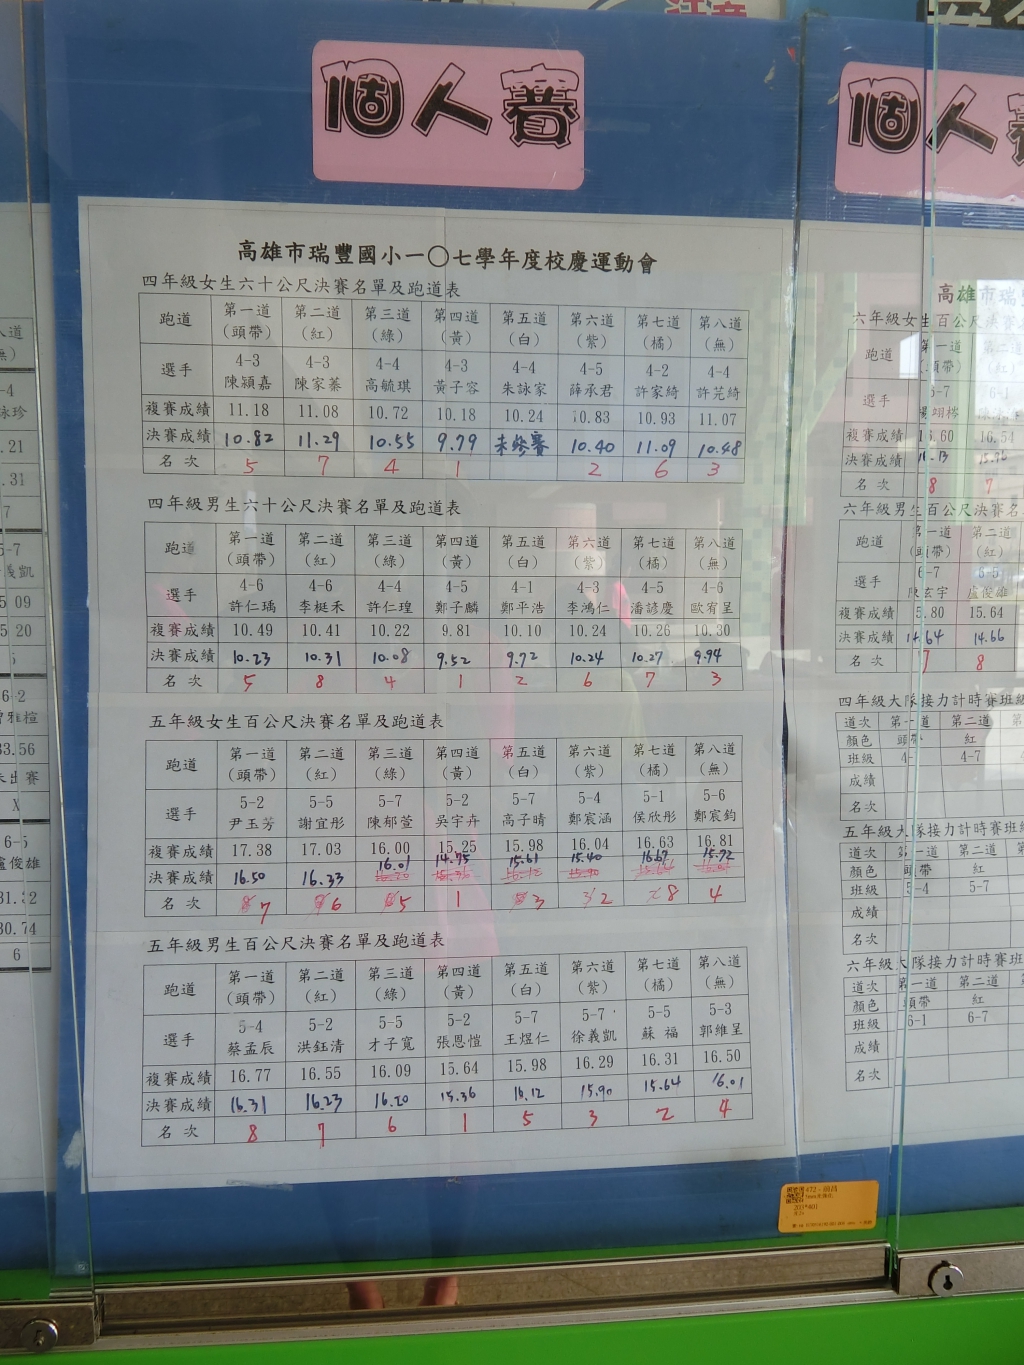 個人賽
高雄市瑞豐國小一〇七學年度校慶運動會
四年級女生六十公尺決賽名單及跑道表
跑道 第一道(頭帶) 第二道(紅) 第三道(綠) 第四道(黃) 第五道(白) 第六道(紫) 第七道(橘) 第八道(無)
選手 4-3陳穎嘉 4-3陳家蓁 4-4高毓琪 4-3黃子容 4-4朱詠家 4-5薛承君 4-2許家綺 4-4許芫綺
複賽成績 11.18 11.08 10.72 10.18 10.24 10.83 10.93 11.07
決賽成績 10.82 11.29 10.55 9.79 未參賽 10.40 11.09 10.48
名次 5 7 4 1 2 6 3
四年級男生六十公尺決賽名單及跑道表
跑道 第一道(頭帶) 第二道(紅) 第三道(綠) 第四道(黃) 第五道(白) 第六道(紫) 第七道(橘) 第八道(無)
選手 4-6許仁瑀 4-6李梃禾 4-4許仁瑝 4-5鄭子麟 4-1鄭平浩 4-3李鴻仁 4-5潘諺慶 4-6歐宥呈
複賽成績 10.49 10.41 10.22 9.81 10.10 10.24 10.26 10.30
決賽成績 10.23 10.31 10.08 9.52 9.72 10.24 10.27 9.94
名次 5 8 4 1 2 6 7 3
五年級女生百公尺決賽名單及跑道表
跑道 第一道(頭帶) 第二道(紅) 第三道(綠) 第四道(黃) 第五道(白) 第六道(紫) 第七道(橘) 第八道(無)
選手 5-2尹玉芳 5-5謝宜彤 5-7陳郁萱 5-2吳宇卉 5-7高子晴 5-4鄭宸涵 5-1侯欣彤 5-6鄭宸鈞
複賽成績 17.38 17.03 16.00 15.25 15.98 16.04 16.63 16.81
決賽成績 16.50 16.33 16.01 14.75 15.61 15.40 16.67 15.72
名次 7 6 5 1 3 2 8 4
五年級男生百公尺決賽名單及跑道表
跑道 第一道(頭帶) 第二道(紅) 第三道(綠) 第四道(黃) 第五道(白) 第六道(紫) 第七道(橘) 第八道(無)
選手 5-4蔡孟辰 5-2洪鈺清 5-5才子寬 5-2張恩愷 5-7王煜仁 5-7徐義凱 5-5蘇福 5-3郭維呈
複賽成績 16.77 16.55 16.09 15.64 15.98 16.29 16.31 16.50
決賽成績 16.31 16.23 16.20 15.36 16.12 15.90 15.64 16.01
名次 8 7 6 1 5 3 2 4
個人賽
高雄市瑞
六年級女生百公尺決賽
跑道 第一道(頭帶) 第二道
選手 6-1
複賽成績 16.54
決賽成績
名次 8 7
六年級男生百公尺決賽名
跑道 第一道(頭帶) 第二道(紅)
選手 6-7陳玄宇 6-5盧俊雄
複賽成績 5.80 15.64
決賽成績 14.64 14.66
名次 7 8
四年級大隊接力計時賽班級
道次 第一道 第二道
顏色 頭帶 紅
班級 4- 4-7
成績
名次
五年級大隊接力計時賽班級
道次 第一道 第二道
顏色 頭帶 紅
班級 5-4 5-7
成績
名次
六年級大隊接力計時賽班
道次 第一道 第二道
顏色 頭帶 紅
班級 6-1 6-7
成績
名次